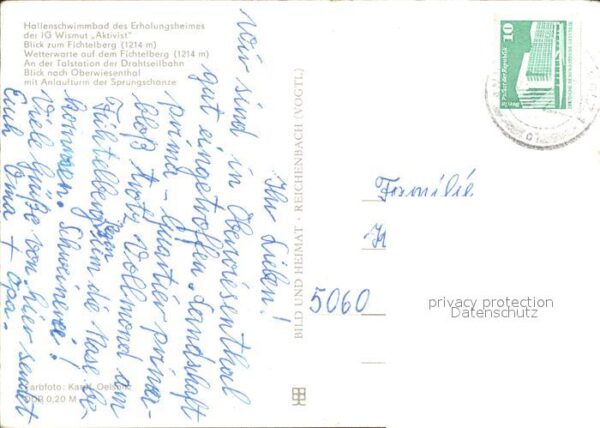 Hallenschwimmbad des Erholungsheimes
der IG Wismut „Aktivist"
Blick zum Fichtelberg (1214 m)
Wetterwarte auf dem Fichtelberg (1214 m)
An der Talstation der Drahtseilbahn
Blick nach Oberwiesenthal
mit Anlaufturm der Sprungschanze
Ihr Lieben!
Wir sind in Oberwiesenthal
gut eingetroffen. Landschaft
prima - Quartier prima -
bloß trotz Vollmond am
Fichtelberg kein
um die Nase be-
kommen. Schweinerei!
Viele Grüße von hier sendet
Euch Oma + Opa.
BILD UND HEIMAT · REICHENBACH (VOGTL.)
10
Palast der Republik
Berlin
Familie
5060
privacy protection
Datenschutz
Farbfoto:
DDR 0,20 M